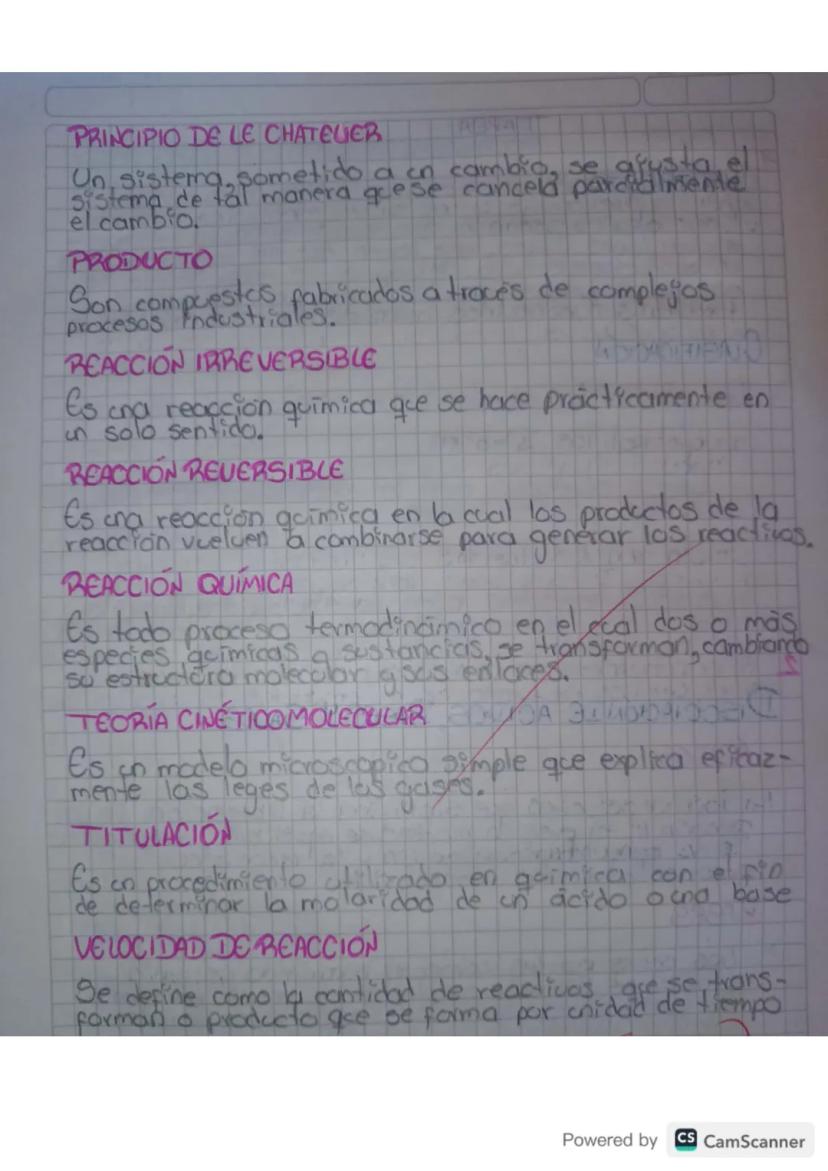 PRINCIPIO DE LE CHATELIER
Un sistema, sometido a un cambio, se ajusta el
sistema de tal manera que se cancela parcialmente
el cambio.
PRODUCTO
Son compuestos fabricados a través de complejos
procesos industriales.
REACCIÓN IRREVERSIBLE
Es una reacción química que se hace prácticamente en
un solo sentido.
REACCIÓN REVERSIBLE
Es una reacción química en la cual los productos de la
reacción vuelven a combinarse para generar los reactivos.
REACCIÓN QUÍMICA
Es todo proceso termodinámico en el cual dos o más
especies químicas o sustancias, se transforman, cambiando
su estructura molecular y sus enlaces.
TEORÍA CINÉTICO MOLECULAR
Es un modelo microscopico simple que explica eficaz-
mente las leyes de los gases.
TITULACIÓN
Es un procedimiento utilizado en química con el fin
de determinar la molaridad de un ácido o una base
VELOCIDAD DE REACCIÓN
Se define como la cantidad de reactivos que se trans-
forman o producto que se forma por unidad de tiempo
Powered by CS CamScanner